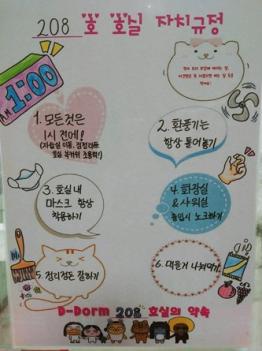 208호 호실 자치규정
AM 1:00
1. 모든것은
1시 전에!
2. 환풍기는
항상 틀어놓기
3. 호실 내
마스크 항상
착용하기
4. 화장실
& 샤워실
출입시 노크하기
5. 정리정돈 잘하기
6. 맛난거 나눠먹기
D-Dorm 208 호실의 약속